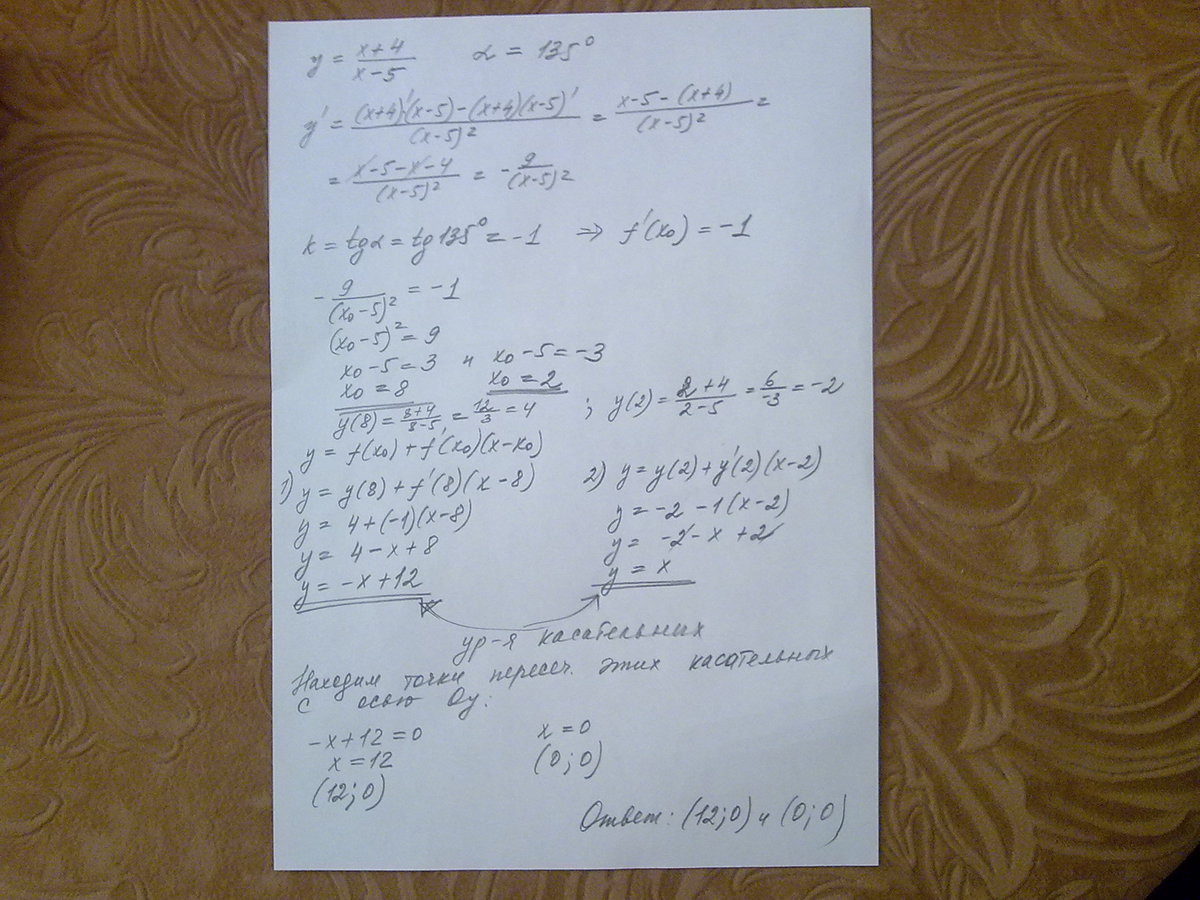 y = (x+4)/(x-5)   α = 135°
y' = ((x+4)'(x-5)-(x+4)(x-5)')/(x-5)² = (x-5-(x+4))/(x-5)² =
= (x-5-x-4)/(x-5)² = -9/(x-5)²
k = tgα = tg135° = -1 ⇒ f'(x₀) = -1
-9/(x₀-5)² = -1
(x₀-5)² = 9
x₀-5=3 и x₀-5=-3
x₀ = 8   x₀ = 2
y(8) = (8+4)/(8-5) = 12/3 = 4 ; y(2) = (2+4)/(2-5) = 6/-3 = -2
y = f(x₀)+f'(x₀)(x-x₀)
1) y = y(8)+f'(8)(x-8)
y = 4+(-1)(x-8)
y = 4-x+8
y = -x+12
2) y = y(2)+y'(2)(x-2)
y = -2-1(x-2)
y = -2-x+2
y = x
ур-я касательных
Находим точки пересеч. этих касательных
с осью Oy:
-x+12=0
x=12
(12;0)
x=0
(0;0)
Ответ: (12;0) и (0;0)